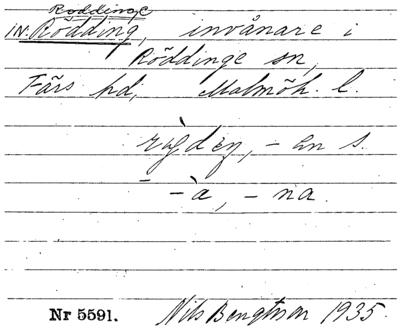 Röddinge
IN: Rödding, invånare i
Röddinge sn,
Färs hd, Malmöh. l.
-en s.
-à, -na.
Nr 5591. Nils Bengtsson 1935.